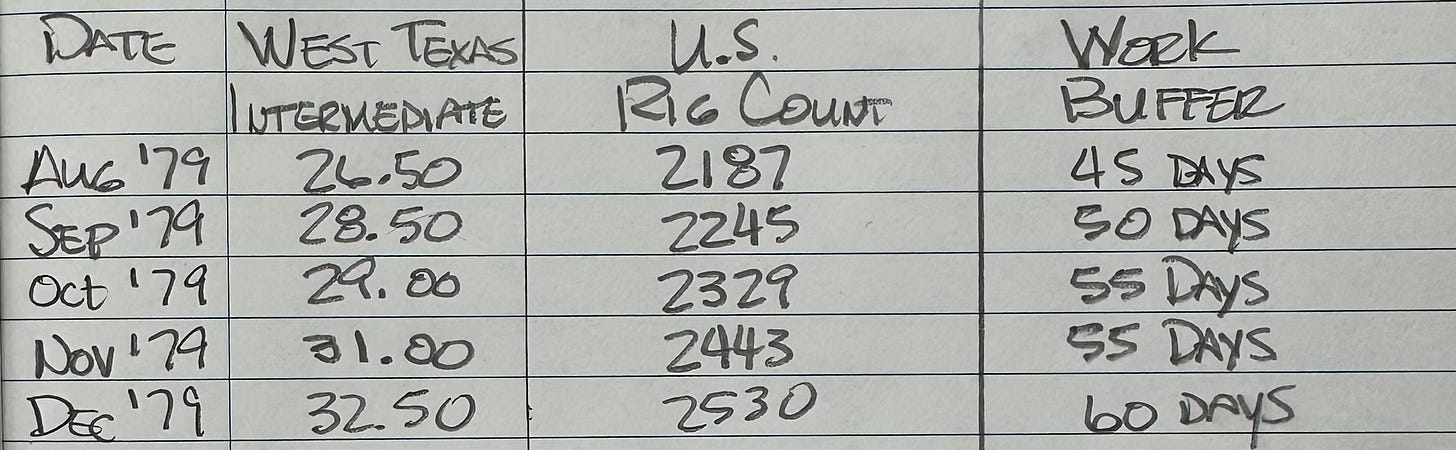 DATE WEST TEXAS U.S. WORK
INTERMEDIATE RIG COUNT BUFFER
AUG '79 26.50 2187 45 DAYS
SEP '79 28.50 2245 50 DAYS
Oct '79 29.00 2329 55 DAYS
NOV '79 31.00 2443 55 DAYS
DEC '79 32.50 2530 60 DAYS